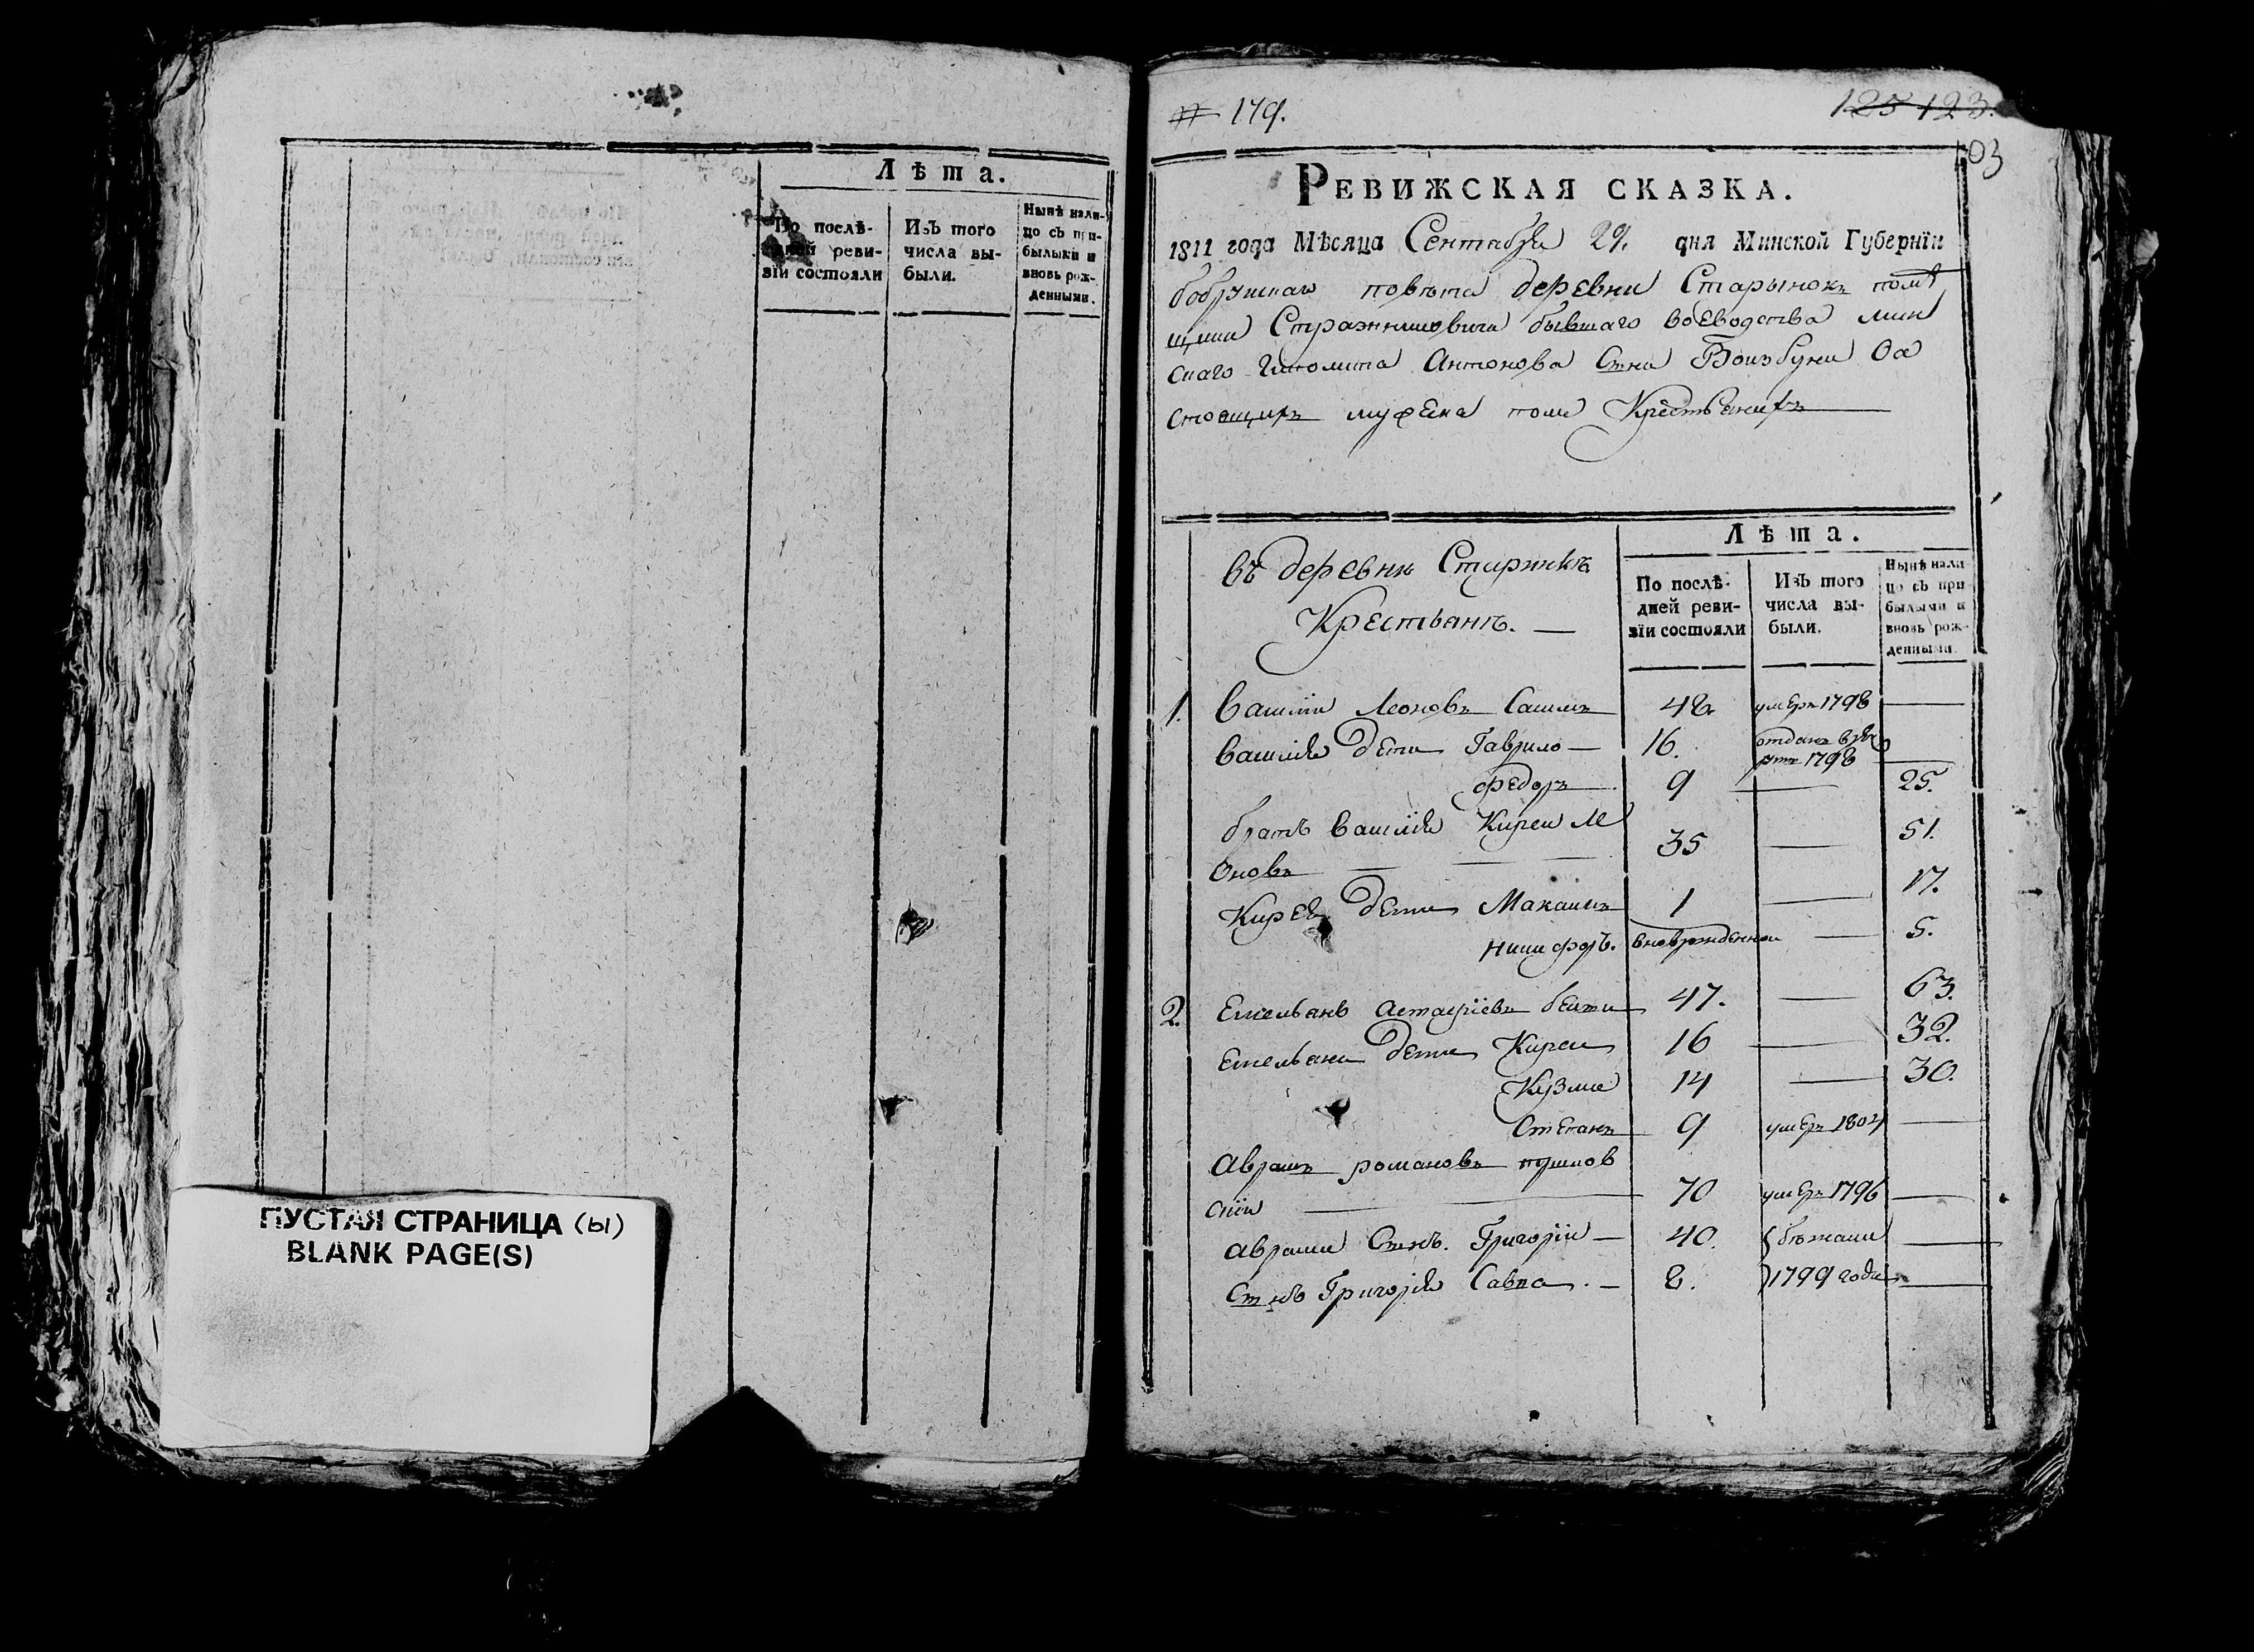 Лѣта.
По послѣ-
дней реви-
зіи состояли
Изъ того
числа вы-
были.
Нынѣ нали-
цо съ при-
былыми и
вновь рож-
денными.
ПУСТАЯ СТРАНИЦА (ы)
BLANK PAGE(S)
179.
125 123.
103
РЕВИЖСКАЯ СКАЗКА.
1811 года Мѣсяца Сентабра 29. дня Минской Губерніи
бобруйскаго повѣта деревни Старынокъ помѣ
щика бывшаго воеводства мин
скаго Антонова Сына Со
стоящихъ мужеска пола Крестьянехъ
Лѣта.
въ деревни Старинкѣ
Крестьянъ.
По послѣ-
дней реви-
зіи состояли
Изъ того
числа вы-
были.
Нынѣ нали
цо съ при
былыми и
вновь рож-
денными.
1. Василій Леоновъ 48 умеръ 1798
Василія дети Гаврило 16. отданъ врек
рути 1798
Федоръ 9 25.
братъ Василія Кирей Ле
оновъ 35 51.
Кирея дети Максимъ 1 17.
Никифоръ. вноврожденной 5.
2. Емельянъ 47. 63.
Емельяна дети Кирей 16 32.
Кузма 14 30.
Степанъ 9 умеръ 1804
Аврамъ романовъ
скій 70 умеръ 1796
Аврама Сынъ. Григорій 40. бѣжали
Сынъ Григорія Савка. 8. 1799 года